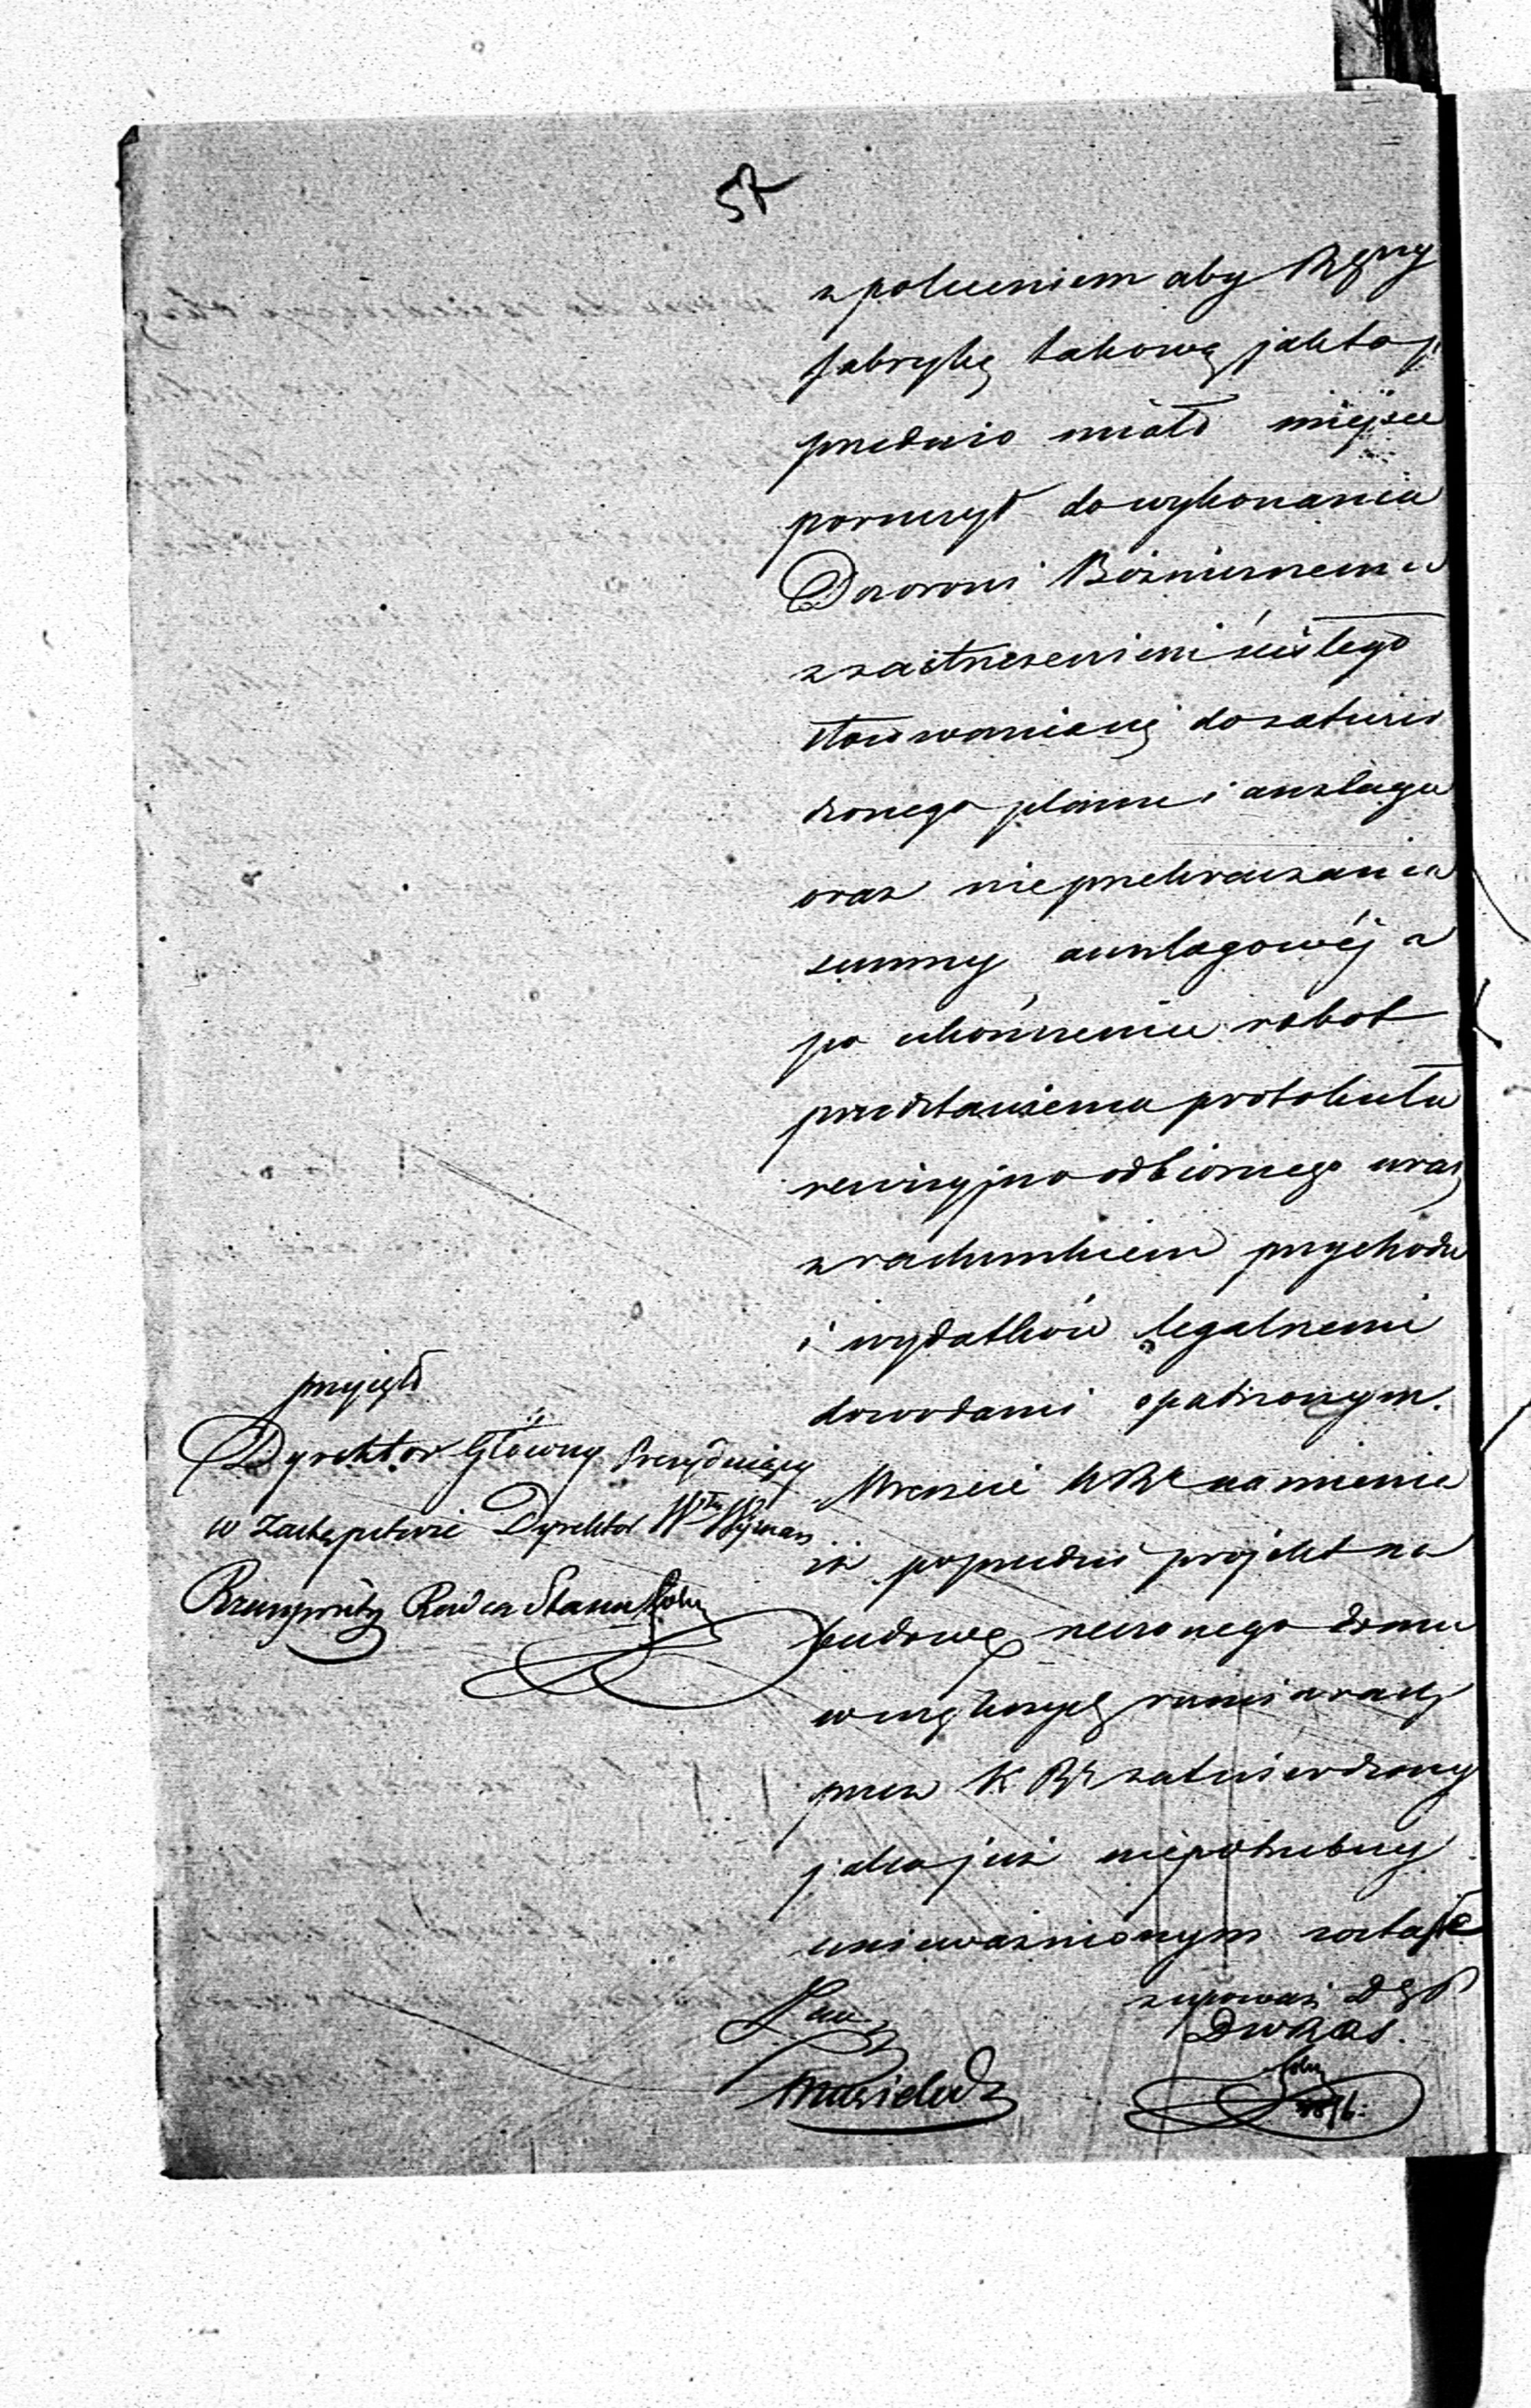 57
z poleceniem aby Rząd Gny
fabrykę takową jak to p
przednio miało miejsce
poruczył do wykonania
Dozorowi Bożniczemu
z zastrzeżeniem ścisłego
stosowania się do zatwier
dzonego planu i anszlagu
oraz nieprzekraczania
summy anszlagowéj a
po ukończeniu robot
przedstawienia protokułu
rewizyjno odbiornego wraz
z rachunkiem przychodu
i wydatków legalnemi
dowodami opatrzonym.
Wreszcie KR namienia
iż poprzedni projekt na
budowę rzeczonego domu
w większych rozmiarach
przez KR zatwierdzony
jako już niepotrzebny
unieważnionym zostaje
przyjął
Dyrektor Główny Prezydujący
w Zastępstwie Dyrektor Włu Wyznań
Rzeczywisty Radca Stanu
z upoważ DGP
DWROS.